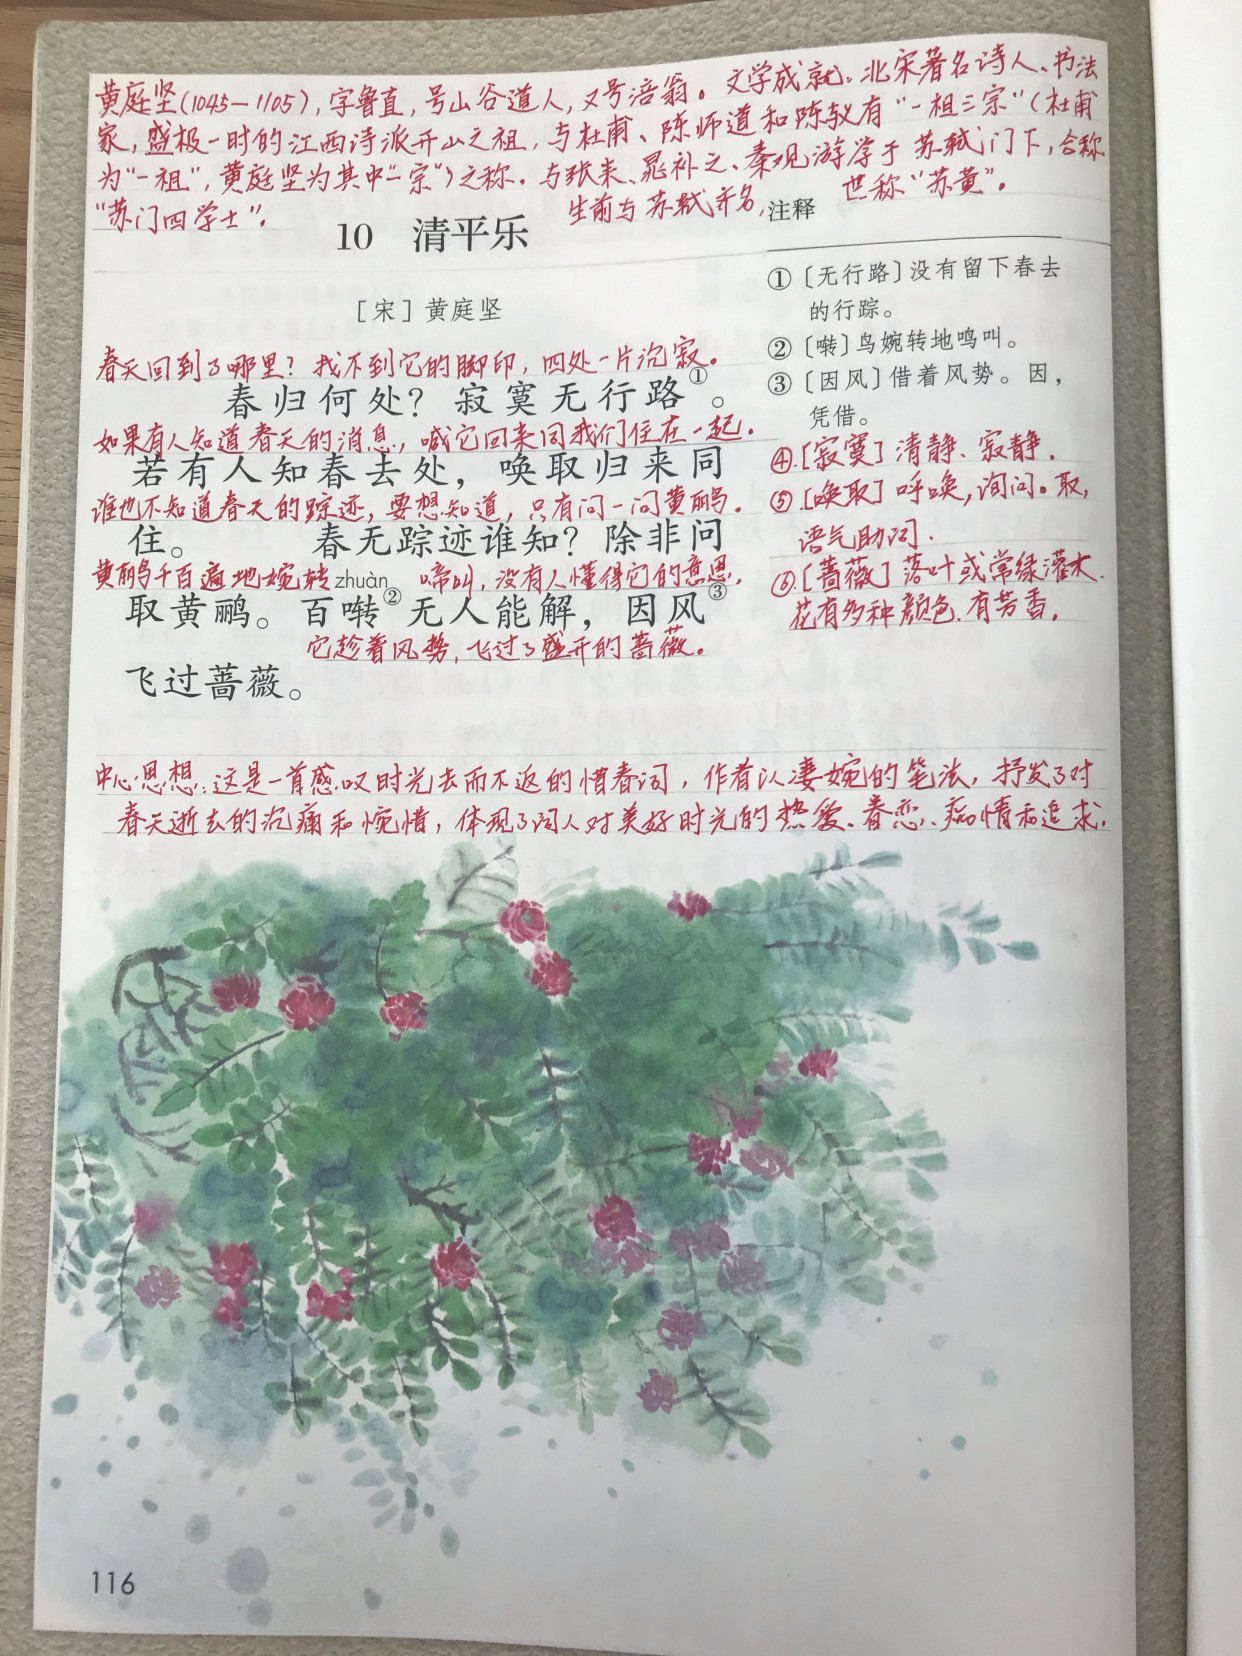 黄庭坚(1045—1105),字鲁直,号山谷道人,又号涪翁。文学成就:北宋著名诗人、书法
家,盛极一时的江西诗派开山之祖,与杜甫、陈师道和陈与义有“一祖三宗”(杜甫
为“一祖”,黄庭坚为其中“一宗”)之称。与张耒、晁补之、秦观游学于苏轼门下,合称
“苏门四学士”。生前与苏轼齐名,世称“苏黄”。
10 清平乐
[宋]黄庭坚
春天回到了哪里?找不到它的脚印,四处一片沉寂。
春归何处?寂寞无行路①。
如果有人知道春天的消息,喊它回来同我们住在一起。
若有人知春去处,唤取归来同
谁也不知道春天的踪迹,要想知道,只有问一问黄鹂。
住。 春无踪迹谁知?除非问
黄鹂千百遍地婉转啼叫,没有人懂得它的意思,
zhuàn
取黄鹂。百啭②无人能解,因风③
它趁着风势,飞过了盛开的蔷薇。
飞过蔷薇。
注释
①〔无行路〕没有留下春去
的行踪。
②〔啭〕鸟婉转地鸣叫。
③〔因风〕借着风势。因,
凭借。
④.[寂寞]清静、寂静.
⑤.[唤取]呼唤,询问。取,
语气助词.
⑥.[蔷薇]落叶或常绿灌木.
花有多种颜色.有芳香.
中心思想:这是一首感叹时光去而不返的惜春词,作者以凄婉的笔法,抒发了对
春天逝去的沉痛和惋惜,体现了词人对美好时光的热爱、眷恋、痴情和追求.
116